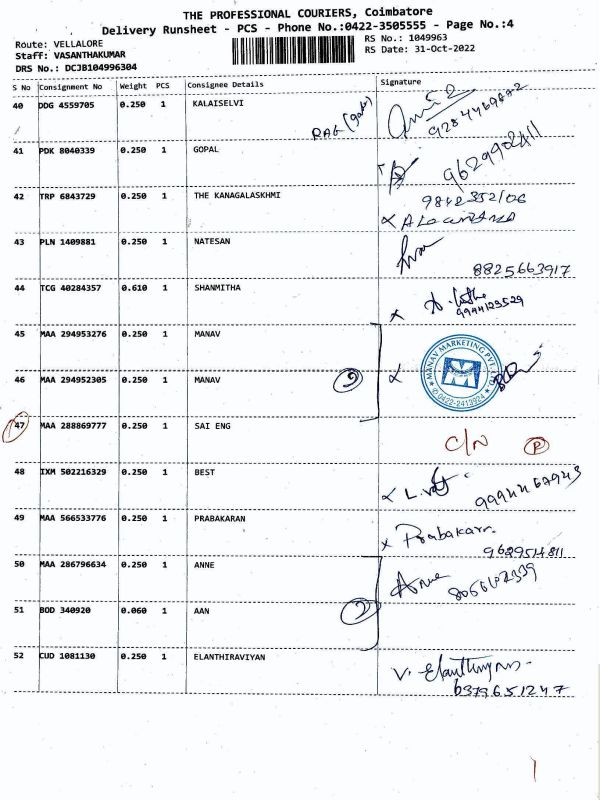 THE PROFESSIONAL COURIERS, Coimbatore
Delivery Runsheet - PCS - Phone No.:0422-3505555 - Page No.:4
Route: VELLALORE
RS No.: 1049963
Staff: VASANTHAKUMAR
RS Date: 31-Oct-2022
DRS No.: DCJB104996304
S No Consignment No Weight PCS Consignee Details Signature
40 DDG 4559705 0.250 1 KALAISELVI
41 PDK 8040339 0.250 1 GOPAL
42 TRP 6843729 0.250 1 THE KANAGALASKHMI
43 PLN 1409881 0.250 1 NATESAN
8825663917
44 TCG 40284357 0.610 1 SHANMITHA
9944123529
45 MAA 294953276 0.250 1 MANAV
MANAV MARKETING PVT. LTD
0422-2413924
46 MAA 294952305 0.250 1 MANAV
47 MAA 288869777 0.250 1 SAI ENG C/N P
48 IXM 502216329 0.250 1 BEST
49 MAA 566533776 0.250 1 PRABAKARAN Prabakaran
50 MAA 286796634 0.250 1 ANNE Anne
51 BOD 340920 0.060 1 AAN 2
52 CUD 1081130 0.250 1 ELANTHIRAVIYAN
6379651247